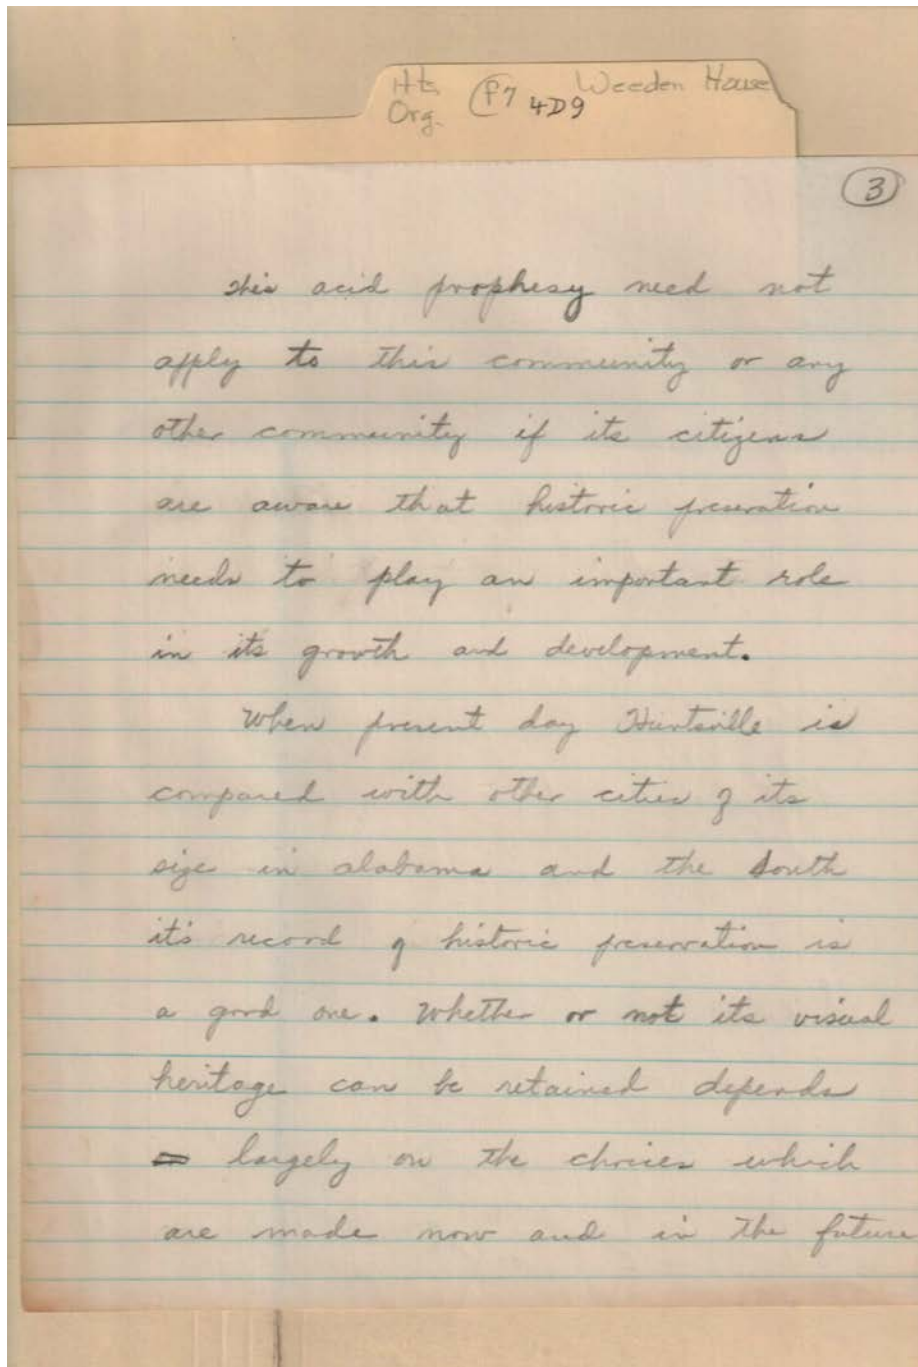 Hts. (F7 4D9 Weeden House
Org.
3
This acid prophesy need not
apply to this community or any
other community if its citizens
are aware that historic preservation
needs to play an important role
in its growth and development.
When present day Huntsville is
compared with other cities of its
size in alabama and the South
it's record of historic preservation is
a good one. Whether or not its visual
heritage can be retained depends
largely on the choices which
are made now and in the future